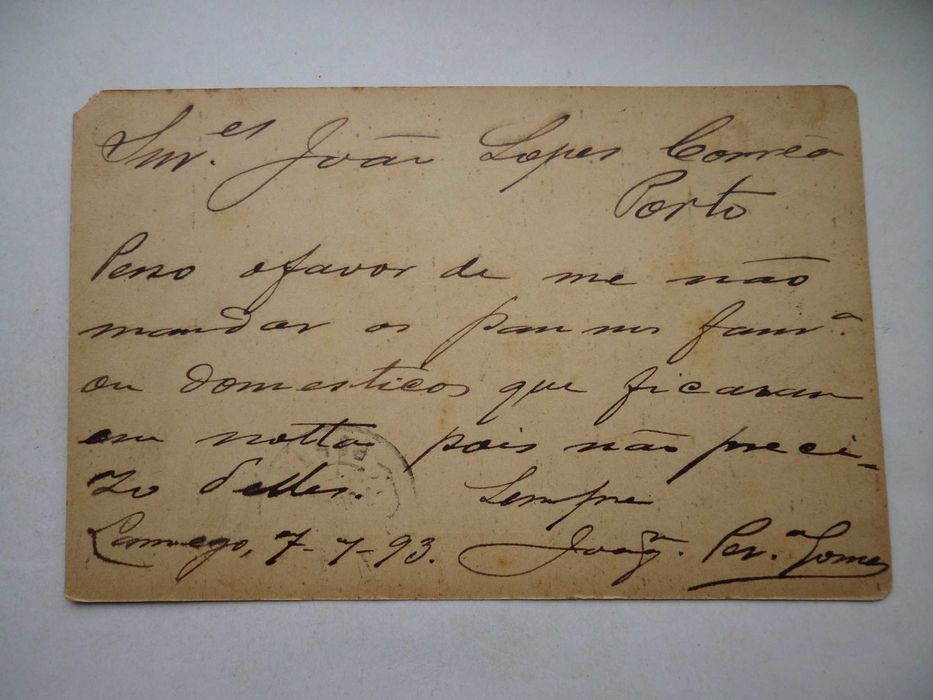 Snr.es João Lopes Corrêa
Porto
Peço o favor de me não
mandar os pannos fam.a
ou domesticos que ficaram
em notta, pois não preci-
zo delles. Sempre
Lamego, 7-7-93. Joaq.m Per.a Gomes